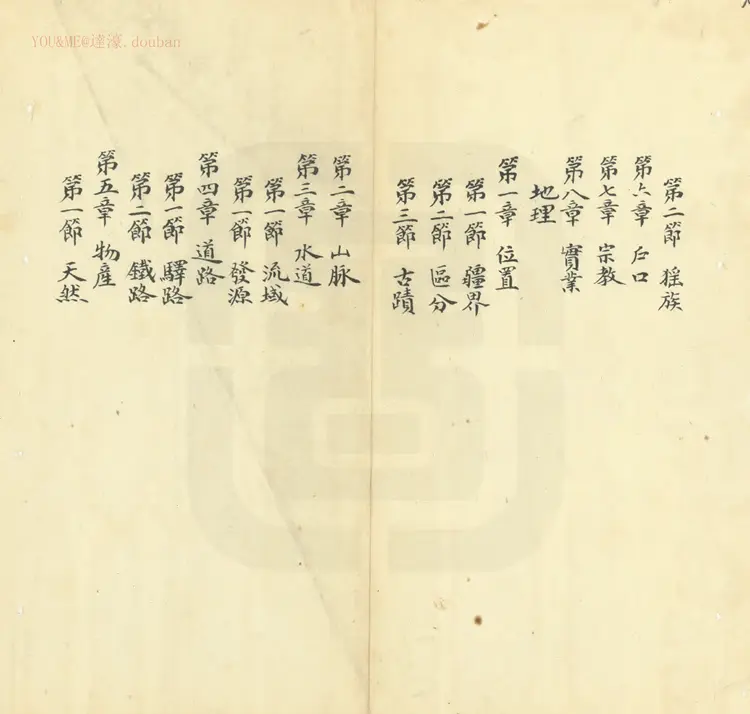 YOU&ME@達濠.douban
第二節 猺族
第六章 户口
第七章 宗教
第八章 實業
地理
第一章 位置
第一節 疆界
第二節 區分
第三節 古蹟
第二章 山脉
第三章 水道
第一節 流域
第一節 發源
第四章 道路
第一節 驛路
第二節 鐵路
第五章 物產
第一節 天然